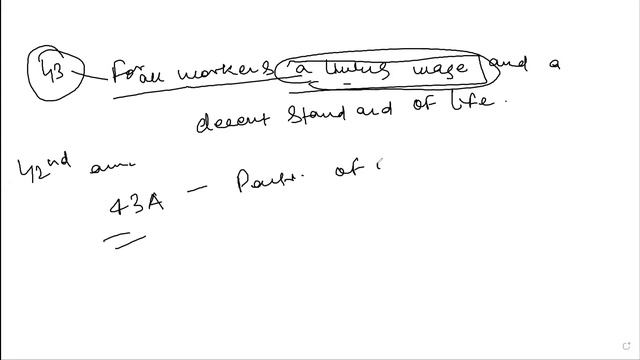 43 — For all workers a living wage and a
decent standard of life.
42nd am.
43A — Parti. of